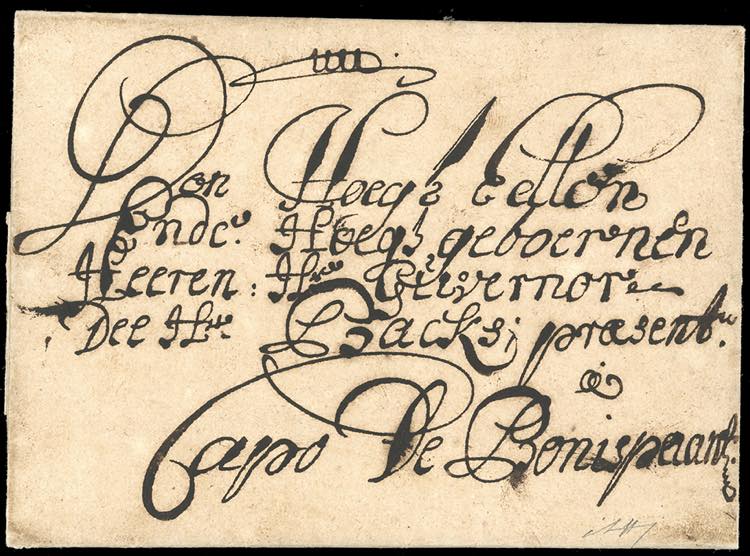 Den Hoegh Eellen
Ende Hoegh geboernen
Heeren: Hre Gevernor
Dee Hre Backs; præsent
à
Capo De Bonispaant